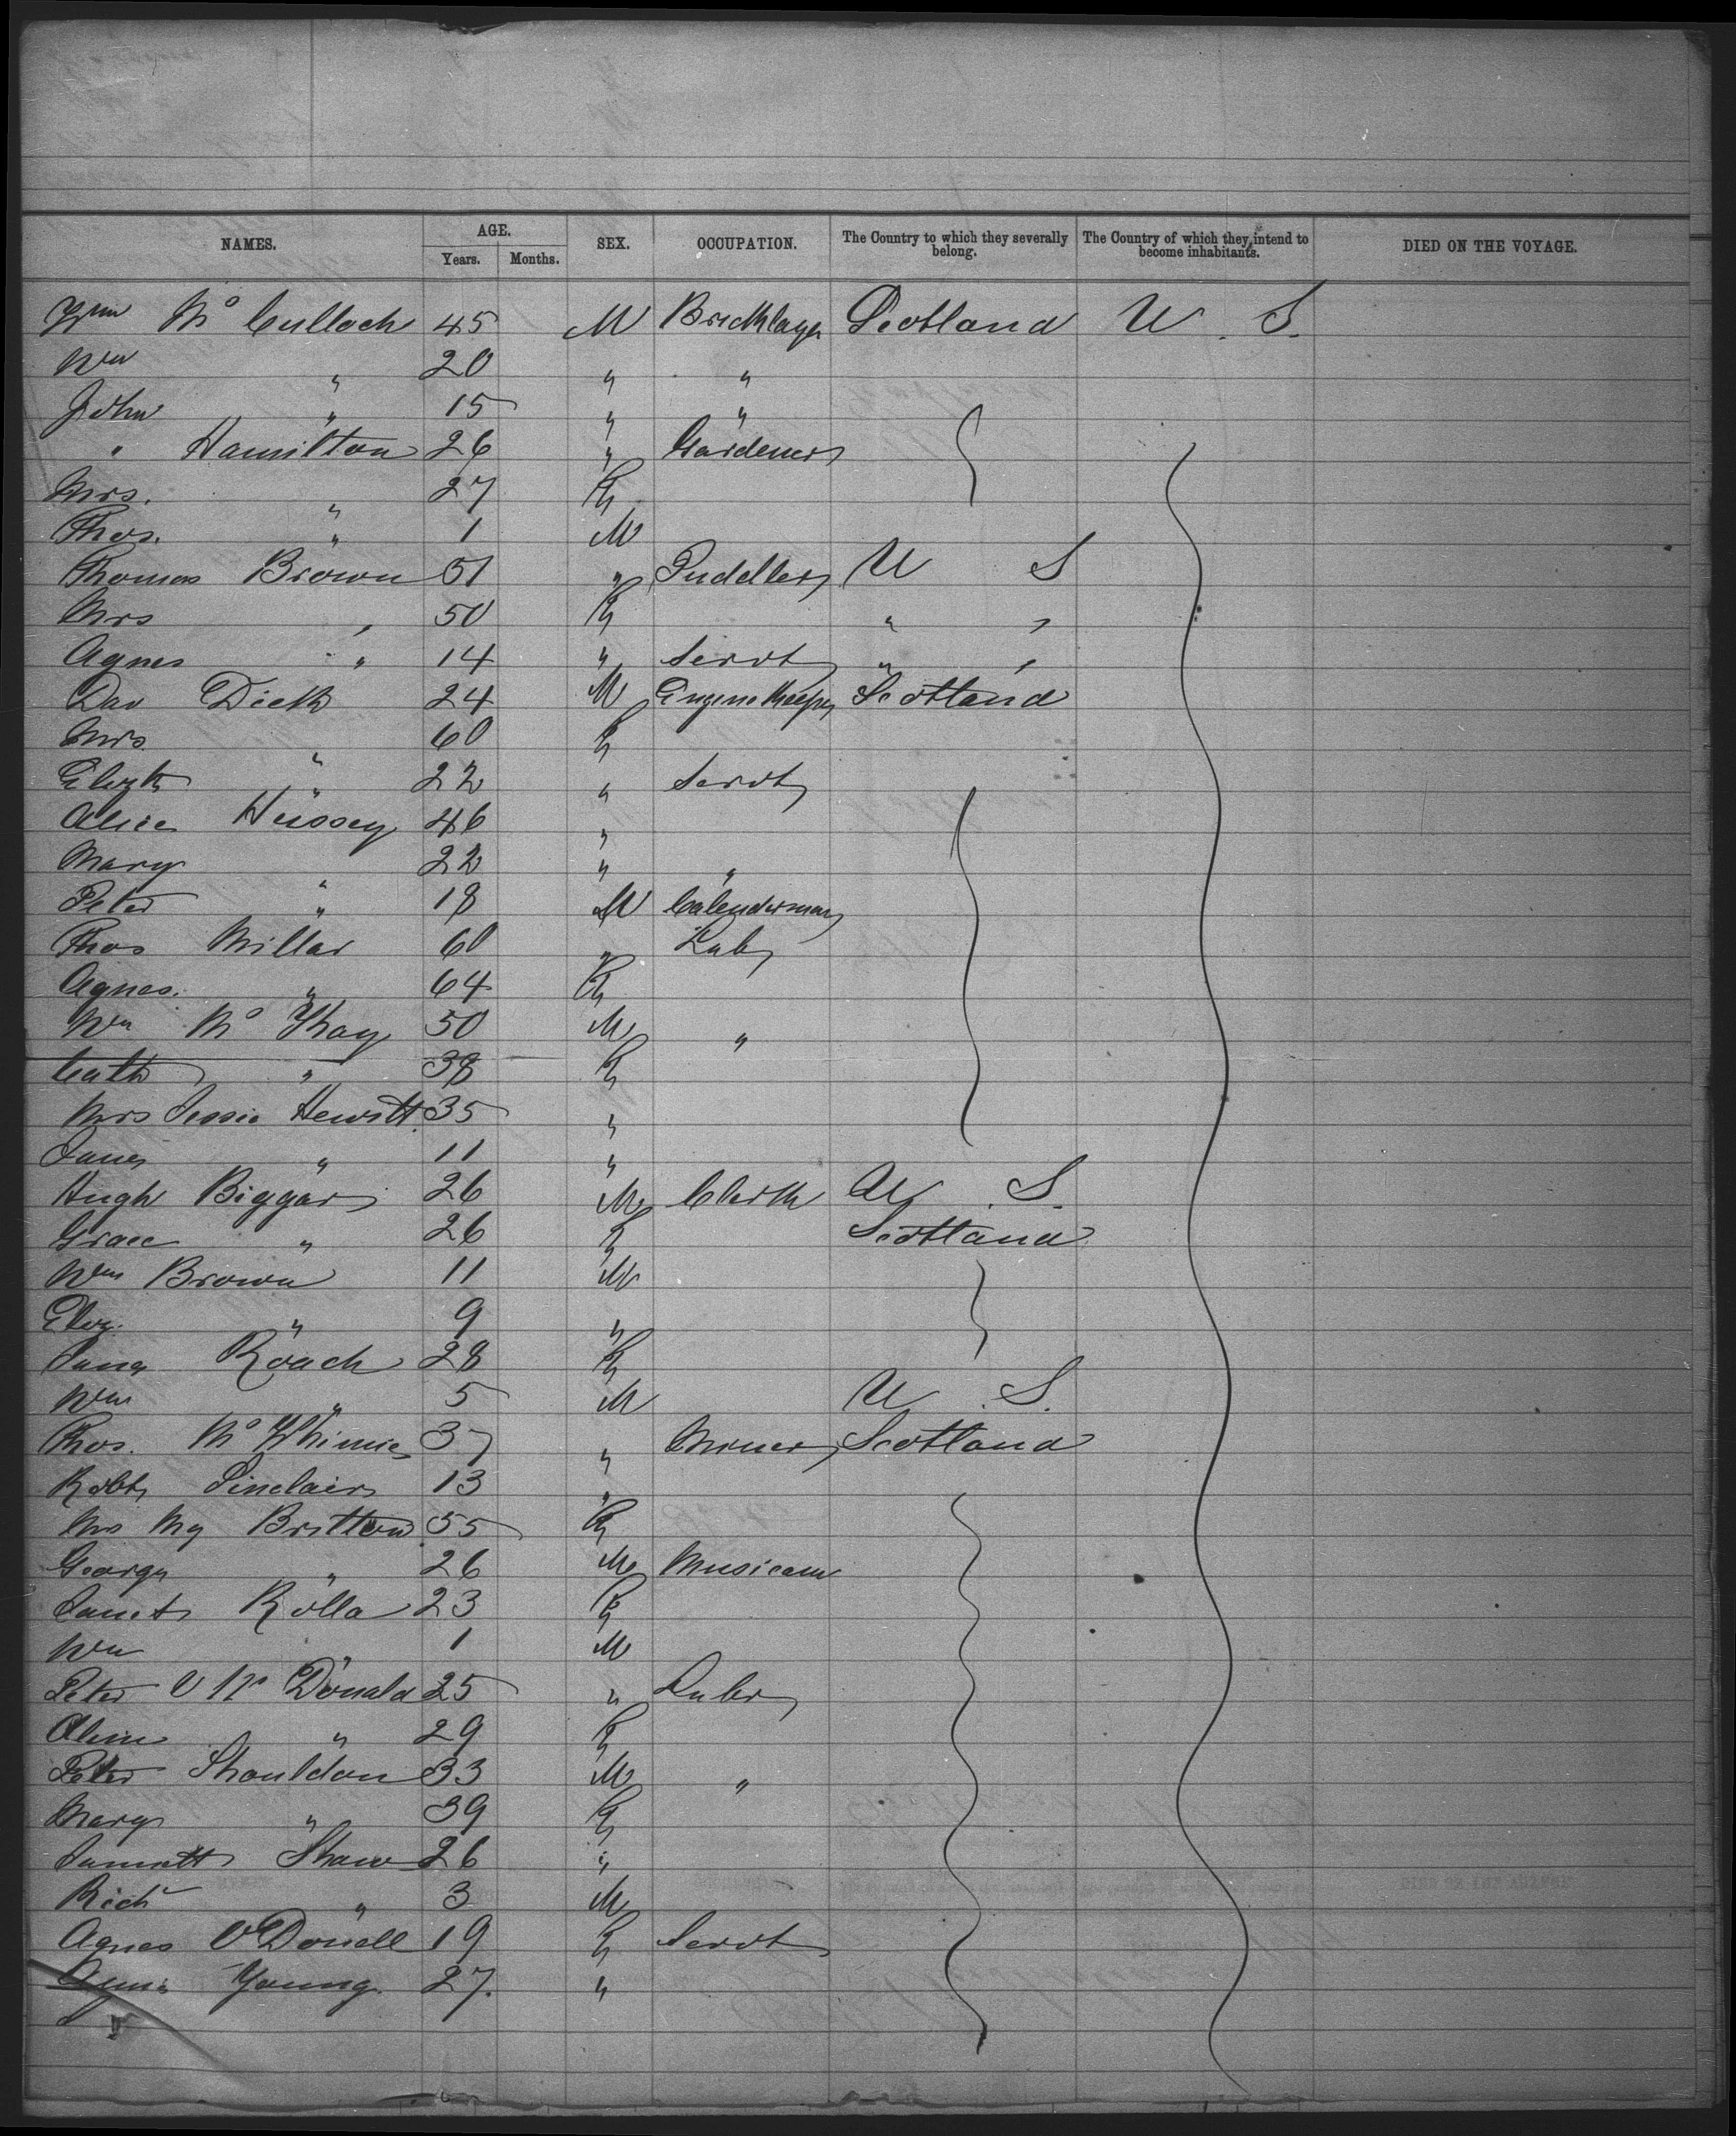 NAMES. AGE. SEX. OCCUPATION. The Country to which they severally belong. The Country of which they intend to become inhabitants. DIED ON THE VOYAGE.
Years. Months.
Wm Mc Culloch 45 M Bricklayer Scotland U. S.
Wm " 20 " "
John " 15 " "
" Hamilton 26 " Gardener
Mrs. " 27 F
Thos. " 1 M
Thomas Brown 51 " Puddler U S
Mrs " 50 F " "
Agnes " 14 " Servt " "
Dav Dick 24 M Engine Keeper Scotland
Mrs. " 60 F
Elizth " 22 " Servt
Alice Hussey 46 "
Mary " 22 " "
Peter " 18 M Calenderman
Thos Millar 60 " Labr
Agnes. " 64 F
Wm Mc Kay 50 M "
Cath " 38 F
Mrs Jessie Hewitt. 35 "
Jane " 11 "
Hugh Biggar 26 M Clerk U. S.
Grace " 26 F Scotland
Wm Brown 11 M
Eliz. " 9 "
Jane Roach 28 F
Wm " 5 M U. S.
Thos. Mc Whinnie 37 " Miner Scotland
Robt Sinclair 13 "
Mrs Mg Britton 55 F
George " 26 M Musician
Janet Rolla 23 F
Wm " 1 M
Peter Mc Donald 25 " Labr
" 29 F
Peter Shouldon 33 M "
Mary " 39 F
Shaw 26 "
Richd " 3 M
Agnes O'Donell 19 F Servt
Young. 27. "